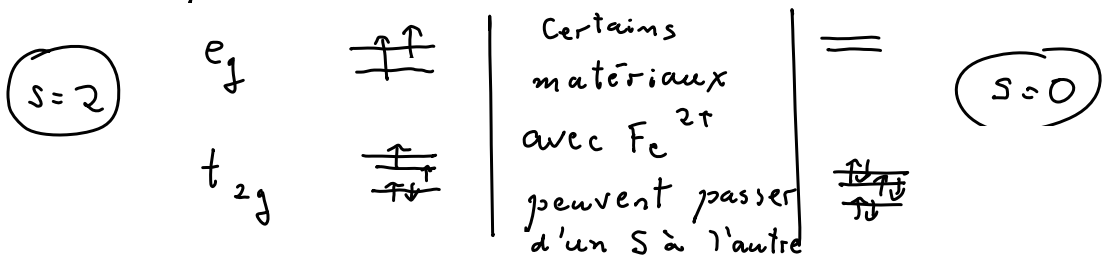 S=2
e_g
t_2g
Certains
matériaux
avec Fe^2+
peuvent passer
d'un S à l'autre
S=0